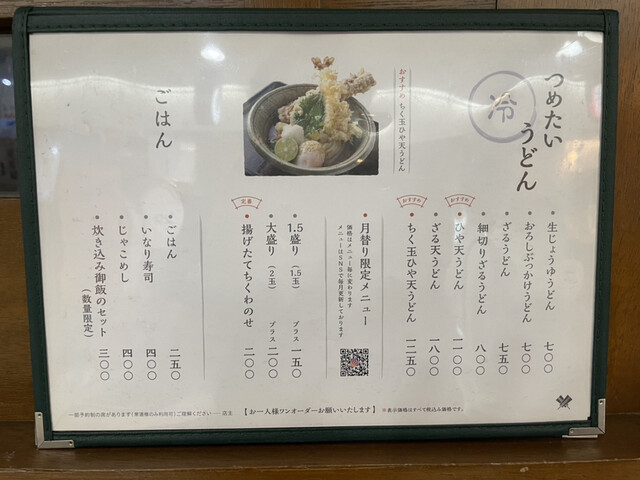 つめたい
うどん
冷
おすすめ ちく玉ひや天うどん
生じょうゆうどん 七〇〇
おろしぶっかけうどん 七〇〇
ざるうどん 七五〇
細切りざるうどん 八〇〇
おすすめ
ひや天うどん 一一〇〇
ざる天うどん 一八〇〇
おすすめ
ちく玉ひや天うどん 一二五〇
月替り限定メニュー
価格はメニュー毎に変わります
メニューはSNSで毎月更新しております
1.5盛り（1.5玉） プラス 一五〇
大盛り（2玉） プラス 二〇〇
定番
揚げたてちくわのせ 二〇〇
ごはん
ごはん 二五〇
いなり寿司 四〇〇
じゃこめし 四〇〇
炊き込み御飯のセット（数量限定） 三〇〇
【お一人様ワンオーダーお願いいたします】
※表示価格はすべて税込み価格です。